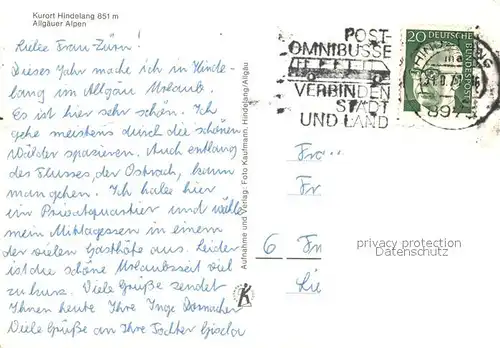 Kurort Hindelang 851 m
Allgäuer Alpen
Liebe Frau Zürn!
Dieses Jahr mache ich in Hinde-
lang im Allgäu Urlaub.
Es ist hier sehr schön. Ich
gehe meistens durch die schönen
Wälder spazieren. Auch entlang
des Flusses, der Ostrach, kann
man gehen. Ich habe hier
ein Privatquartier und wähle
mein Mittagessen in einem
der vielen Gasthöfe aus. Leider
ist die schöne Urlaubszeit viel
zu kurz. Viele Grüße sendet
Ihnen heute Ihre Inge
Viele Grüße an Ihre Tochter Gisela
Aufnahme und Verlag: Foto Kaufmann, Hindelang/Allgäu
K
POST-
OMNIBUSSE
VERBINDEN
STADT
UND LAND
20
DEUTSCHE
BUNDESPOST
HINDELANG
Fra
Fr
6
Lie
privacy protection
Datenschutz